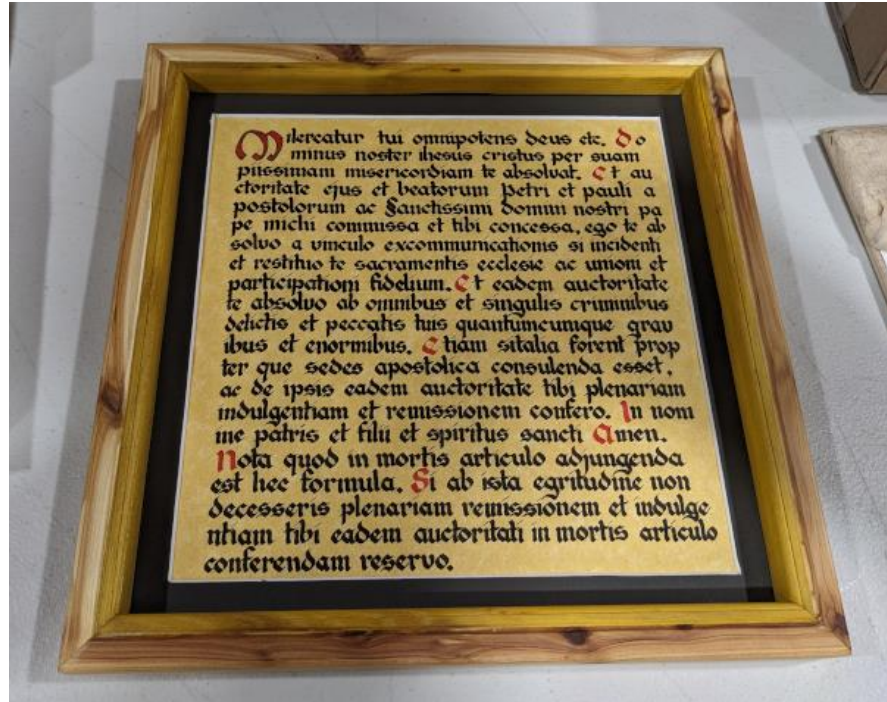 Misereatur tui omnipotens deus etc. Do
minus noster ihesus cristus per suam
piissimam misericordiam te absolvat. Et au
ctoritate ejus et beatorum Petri et pauli a
postolorum ac Sanctissimi domini nostri pa
pe michi commissa et tibi concessa, ego te ab
solvo a vinculo excommunicationis si incidenti
et restituo te sacramentis ecclesie ac unioni et
participationi fidelium. Et eadem auctoritate
te absolvo ab omnibus et singulis criminibus
delictis et peccatis tuis quantumcumque grav
ibus et enormibus. Etiam sitalia forent prop
ter que sedes apostolica consulenda esset,
ac de ipsis eadem auctoritate tibi plenariam
indulgentiam et remissionem confero. In nom
ine patris et filii et spiritus sancti Amen.
Nota quod in mortis articulo adjungenda
est hec formula. Si ab ista egritudine non
decesseris plenariam remissionem et indulge
ntiam tibi eadem auctoritati in mortis articulo
conferendam reservo.